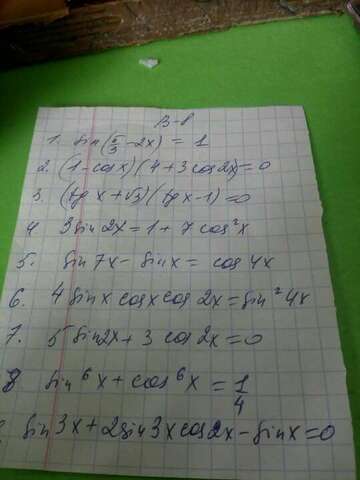 В-1
1. sin(π/3 - 2x) = 1
2. (1 - cosx)(4 + 3cos2x) = 0
3. (tg x + √3)(tg x - 1) = 0
4. 3sin 2x = 1 + 7 cos²x
5. sin 7x - sin x = cos 4x
6. 4 sinx cosx cos 2x = sin² 4x
7. 5 sin2x + 3 cos 2x = 0
8 sin⁶x + cos⁶x = 1/4
sin 3x + 2sin 3x cos2x - sinx = 0